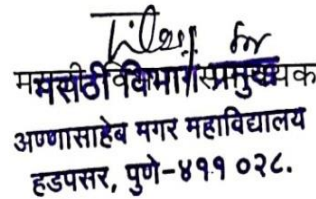 for
मराठी विभाग प्रमुख
अण्णासाहेब मगर महाविद्यालय
हडपसर, पुणे-४११ ०२८.